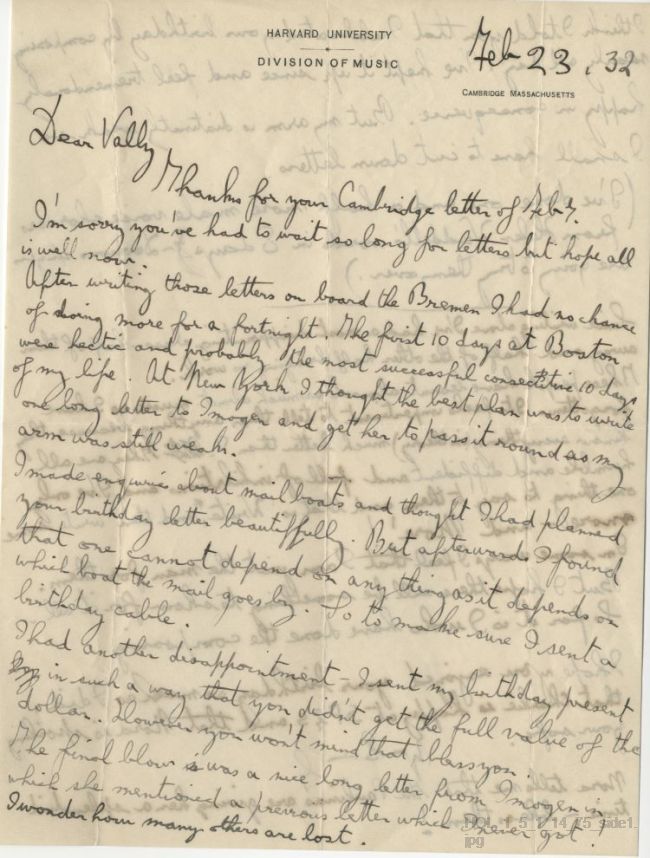 HARVARD UNIVERSITY
DIVISION OF MUSIC
Feb 23. 32
CAMBRIDGE MASSACHUSETTS
Dear Vally
Thanks for your Cambridge letter of Feb 7.
I'm sorry you've had to wait so long for letters but hope all
is well now.
After writing those letters on board the Bremen I had no chance
of doing more for a fortnight. The first 10 days at Boston
were hectic and probably the most successful consecutive 10 days
of my life. At New York I thought the best plan was to write
one long letter to Imogen and get her to pass it round as my
arm was still weak.
I made enquiries about mail boats and thought I had planned
your birthday letter beautiffully. But afterwards I found
that one cannot depend on any thing as it depends on
which boat the mail goes by. So to make sure I sent a
birthday cable.
I had another disappointment - I sent my birthday present
in such a way that you didn't get the full value of the
dollar. However you won't mind that bless you.
The final blow was a nice long letter from Imogen in
which she mentioned a previous letter which I never got!
I wonder how many others are lost.